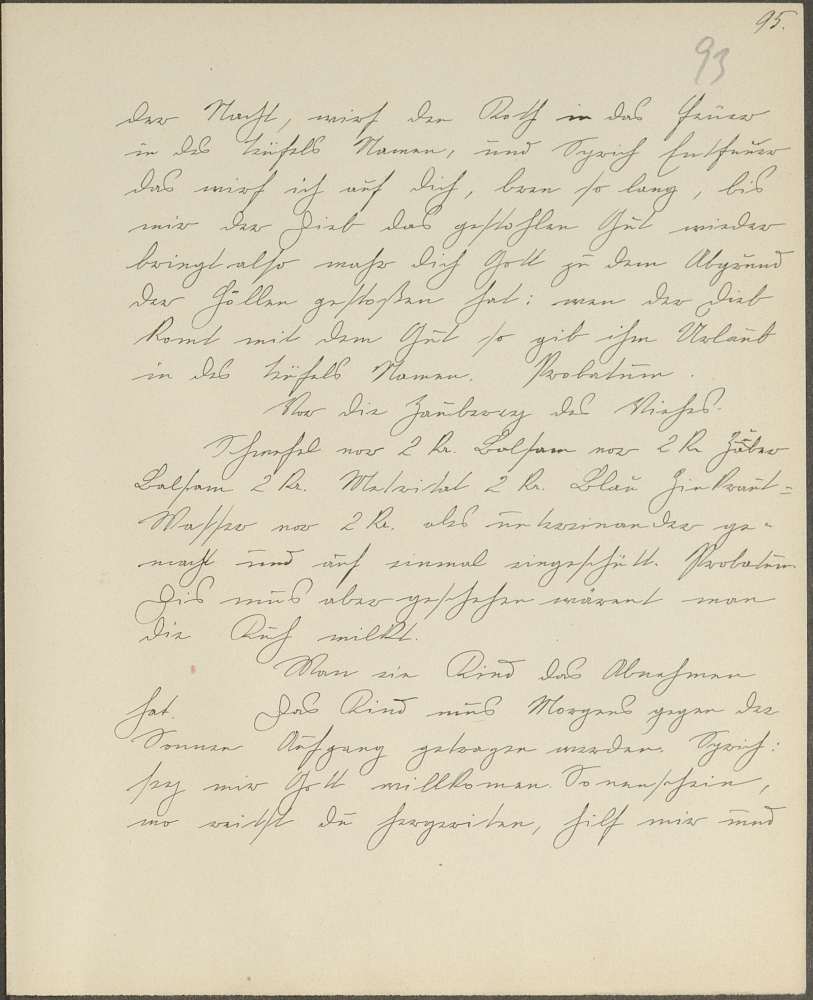 95.
93
der Nacht, wirf den Koth in das Feuer
in des teüfels Namen, und Sprich Entfeuer
das wirf ich auf dich, bren so lang, bis
mir der Dieb das gestohlen Gut wieder
bringt also wahr dich Gott zu dem Abgrund
der Höllen gestoßen hat: wen der Dieb
komt mit dem Gut so gib ihm Urlaub
in des teüfels Namen. Probatum.
Vor die Zauberey des Viehes.
Schwefel vor 2 Kr. Balsam vor 2 Kr Zuber
Balsam 2 Kr. Metritat 2 Kr. Blau Hinkraut=
Wasser vor 2 Kr. ales untereinander ge=
macht und auf einmal eingeschütt. Probatum
Dis mus aber geschehen wärent man
die Kuh milkt.
Wan ein Kind das Abnehmen
hat. Das Kind mus Morgens gegen der
Sonnen Aufgang getragen werden. Sprich:
sey mir Gott willkomen Sonenschein,
wo reitst du hergeriten, hilf mir und